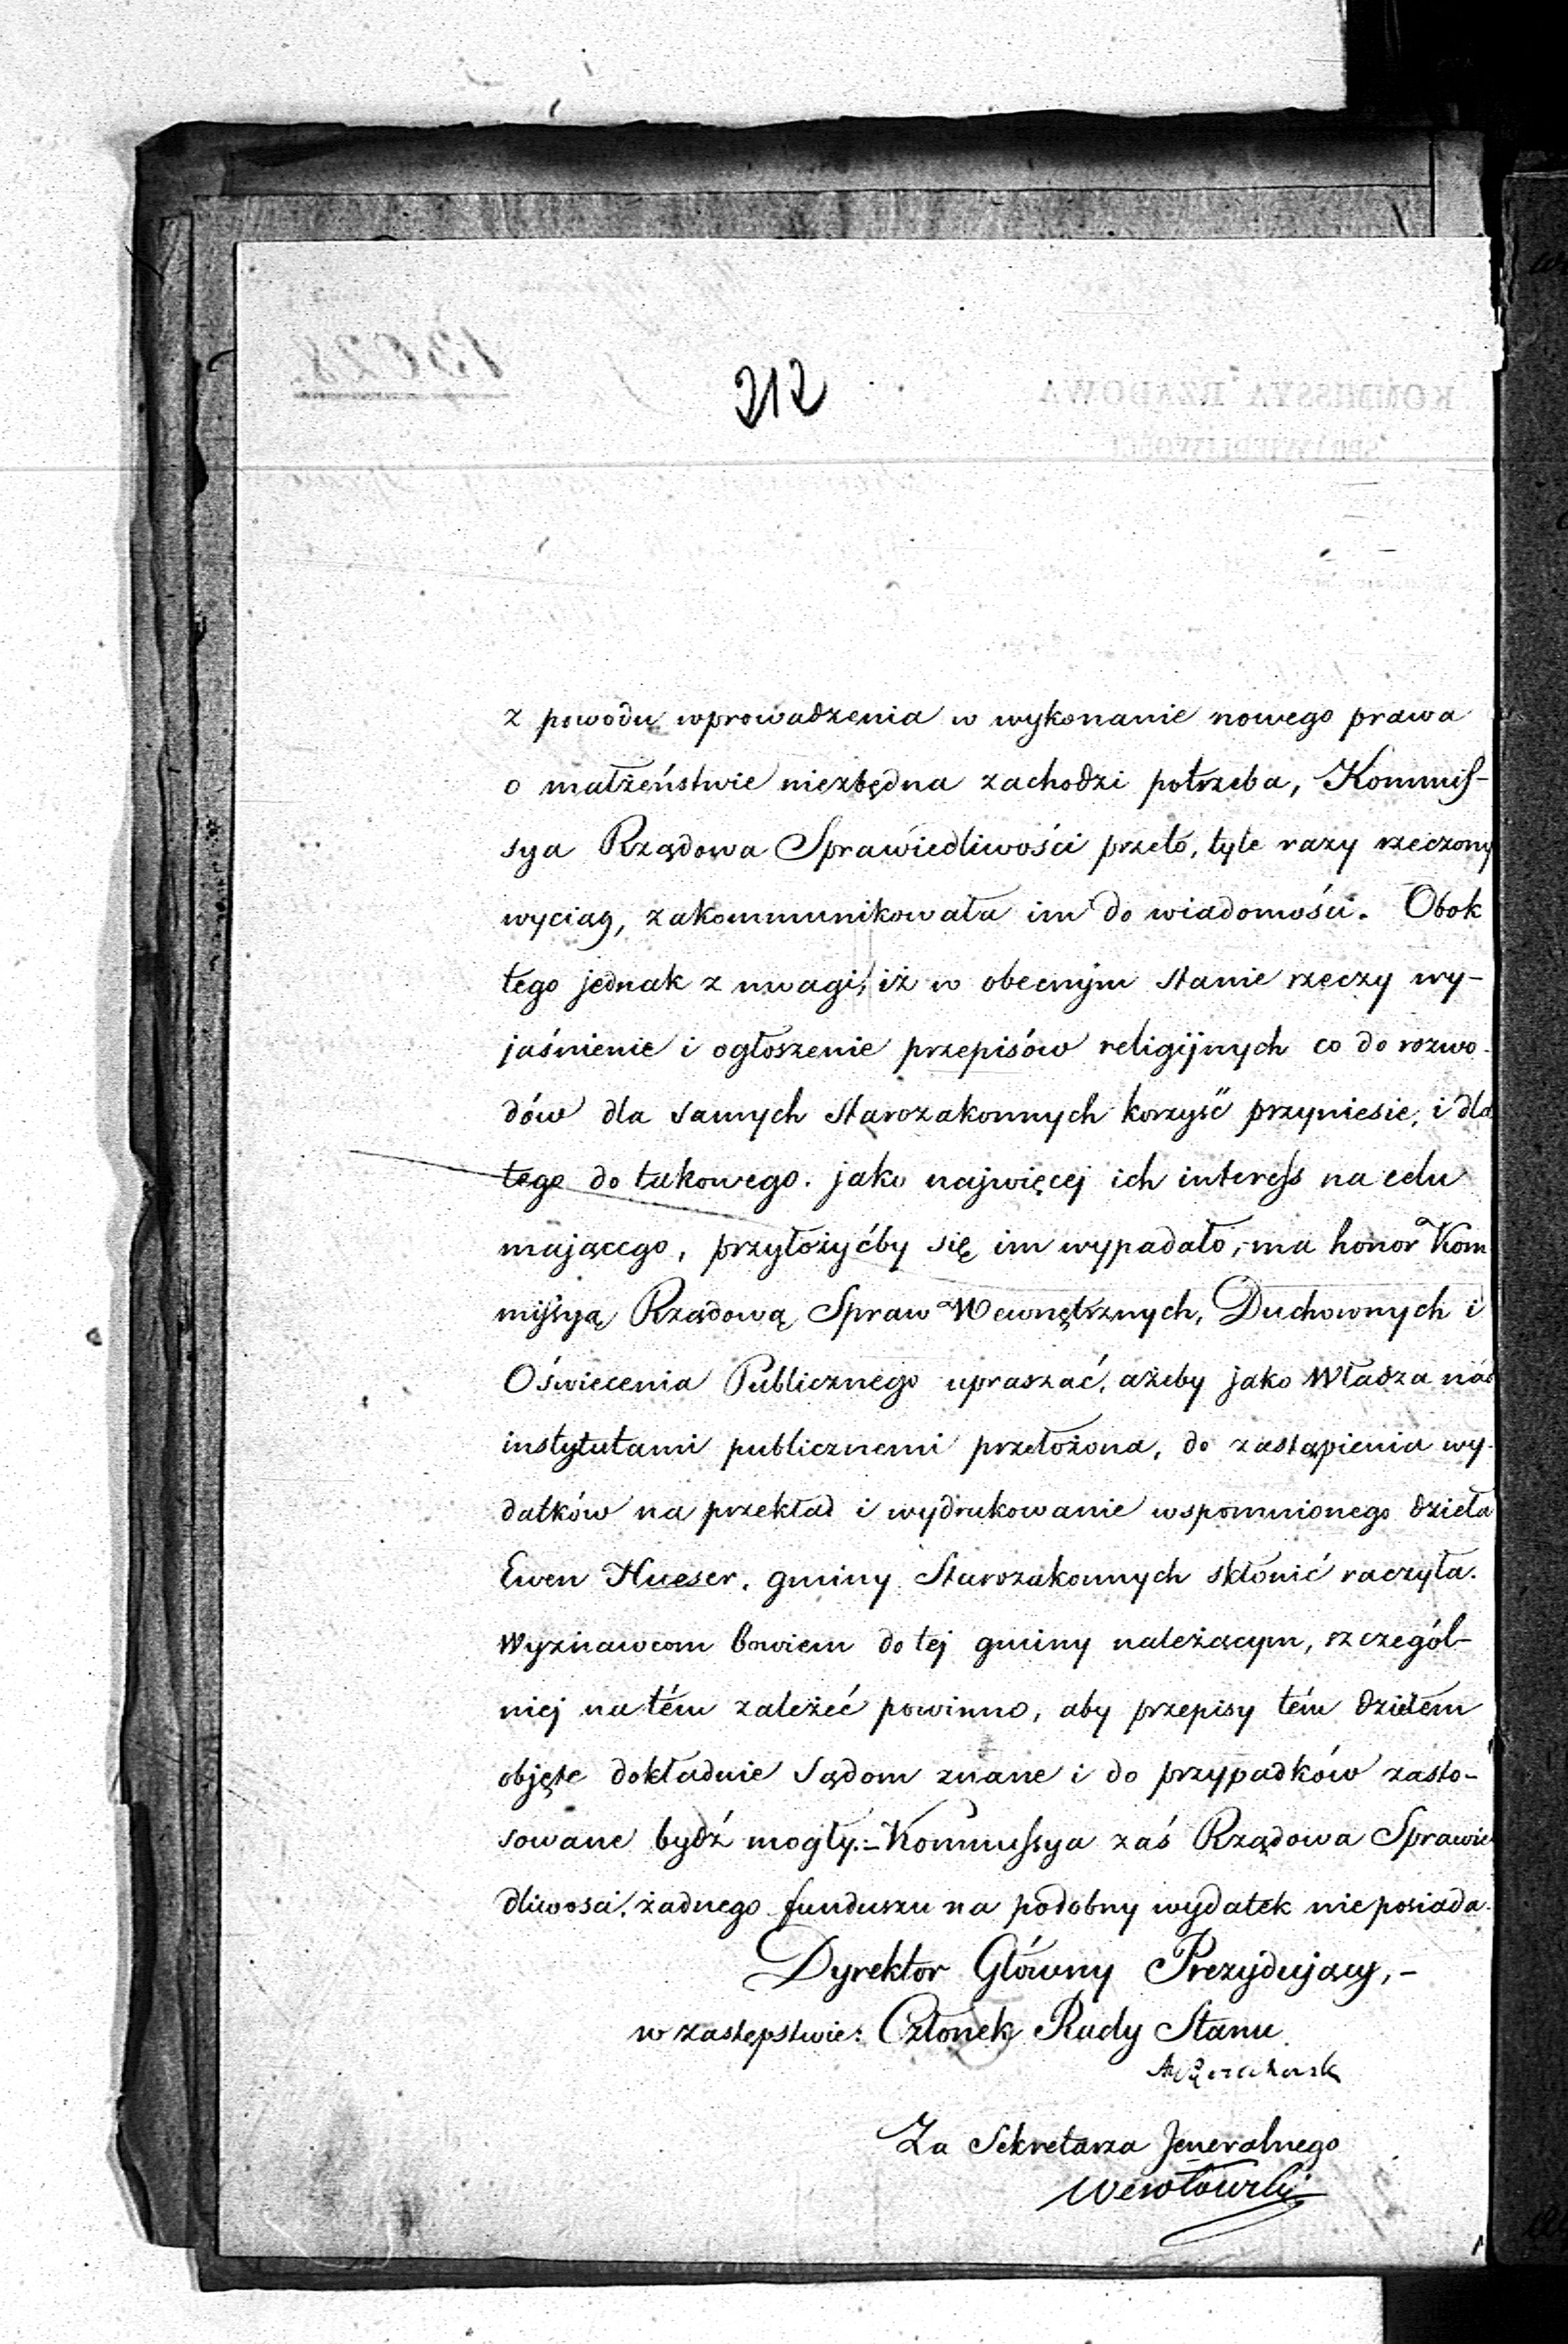 212
z powodu wprowadzenia w wykonanie nowego prawa
o małżeństwie niezbędna zachodzi potrzeba, Kommis-
sya Rządowa Sprawiedliwości przeto, tyle razy rzeczony
wyciąg, zakommunikowała im do wiadomości. Obok
tego jednak z uwagi, iż w obecnym stanie rzeczy wy-
jaśnienie i ogłoszenie przepisów religijnych co do rozwo-
dów dla samych Starozakonnych korzyść przyniesie, i dla
tego do takowego, jako najwięcej ich interess na celu
mającego, przyłożyćby się im wypadało, ma honor Kom
missyą Rządową Spraw Wewnętrznych, Duchownych i
Oświecenia Publicznego upraszać, ażeby jako Władza nad
instytutami publicznemi przełożona, do zastąpienia wy-
datków na przekład i wydrukowanie wspomnionego dzieła
Ewen Hueser, gminy Starozakonnych skłonić raczyła.
Wyznawcom bowiem do tej gminy należącym, szczegól-
niej na tém zależéć powinno, aby przepisy tém dziełem
objęte dokładnie Sądom znane i do przypadków zasto-
sowane bydź mogły.- Kommissya zaś Rządowa Sprawie
dliwości, żadnego funduszu na podobny wydatek nie posiada.
Dyrektor Główny Prezydujący,-
w zastępstwie: Członek Rady Stanu
Za Sekretarza Jeneralnego